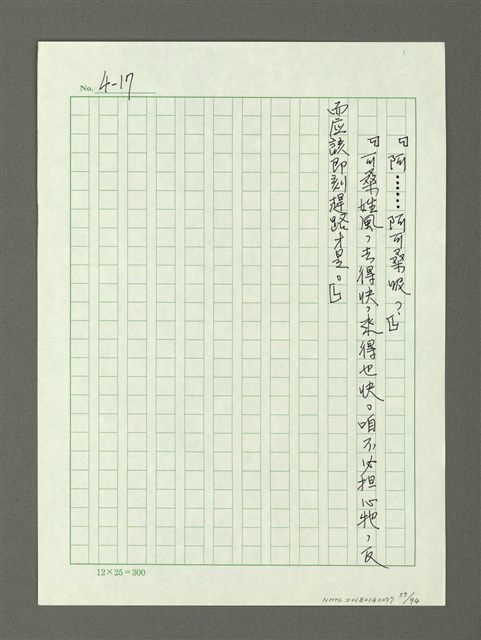 No. 4-17
「阿……阿可桑呢?」
「可桑姓風,去得快,來得也快。咱不必担心牠,反
而应該即刻趕路才是。」
12×25=300
NMTL20180140077 39/94